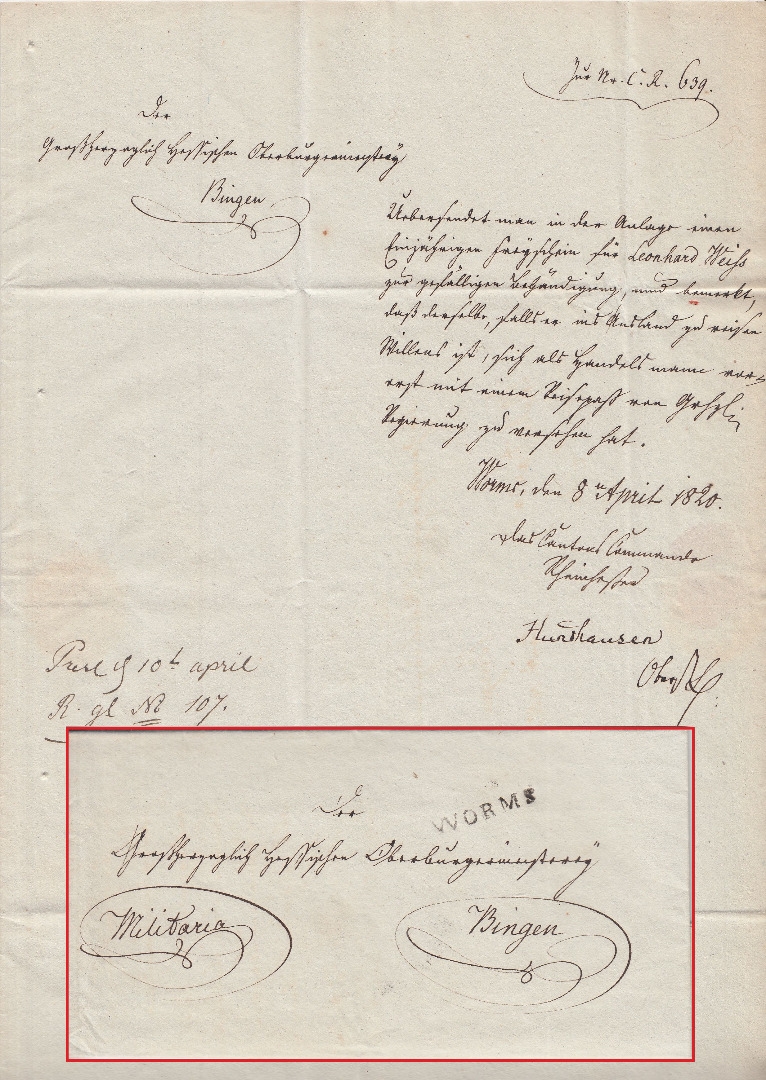 Zur Nr. C. R. 639.
Der
Großherzoglich Hessischen Oberbürgermeisterey
Bingen
Uebersendet man in der Anlage einen
Einjährigen Freyschein für Leonhard Weiss
zur gefälligen Behändigung, und bemerkt,
daß derselbe, falls er ins Ausland zu reisen
Willens ist, sich als Handelsmann vor-
erst mit einem Reisepaß von
Regierung zu versehen hat.
Worms, den 8n April 1820.
Das Cantons Commando
Rheinhessen
Hundhausen
Oberst
10t april
R. gl № 107.
WORMS
Der
Großherzoglich Hessischen Oberbürgermeisterey
Militaria
Bingen